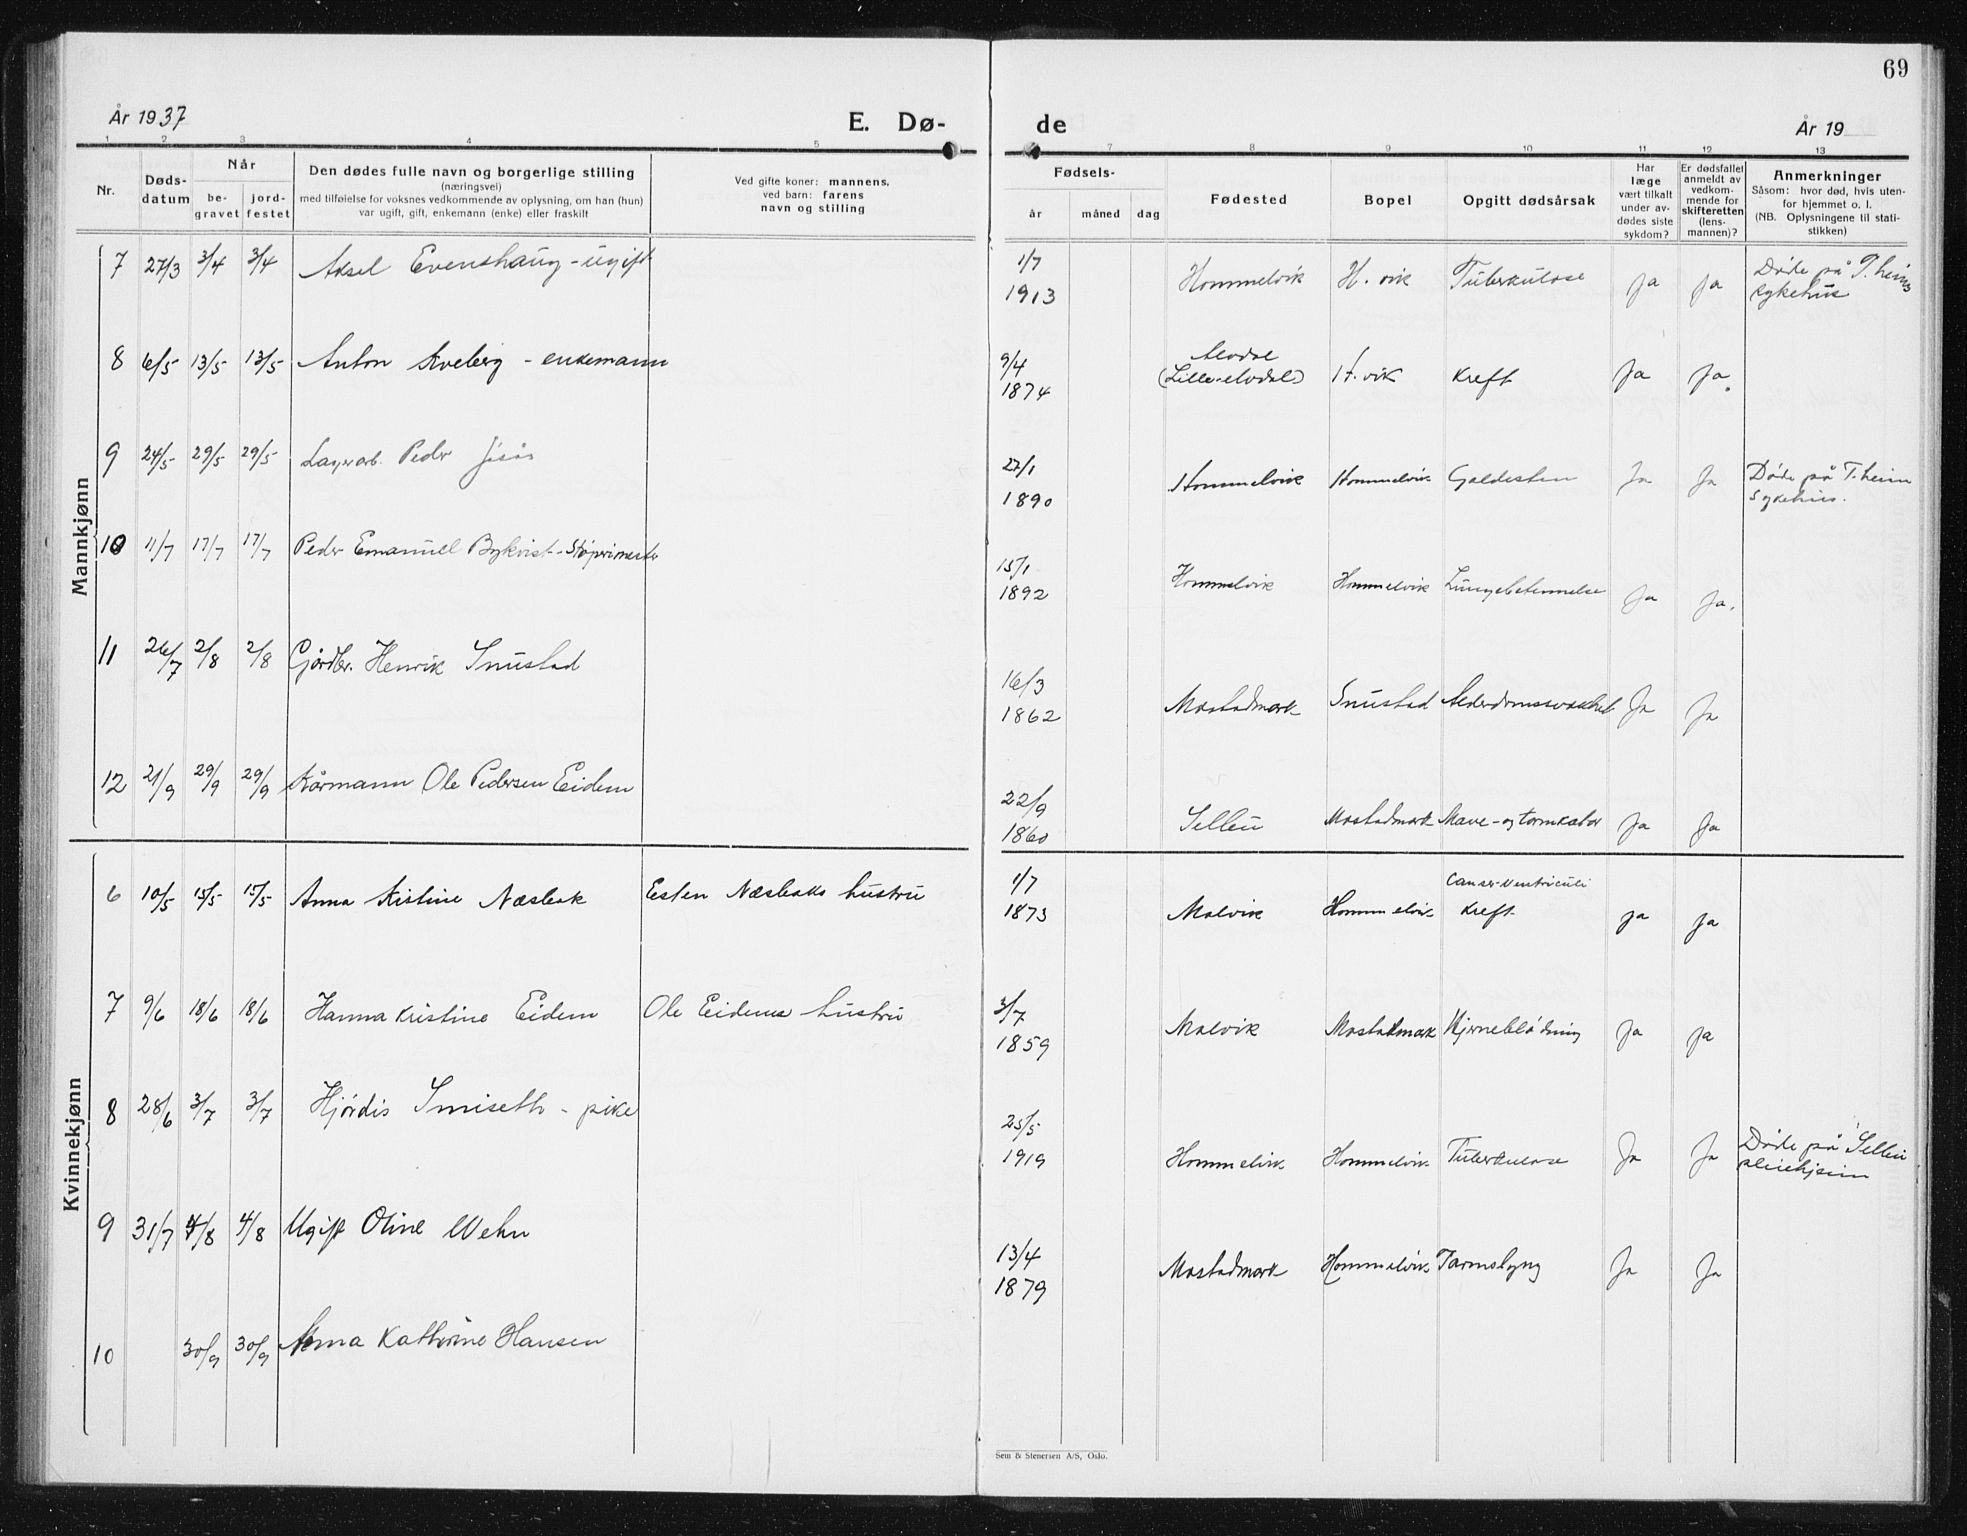 69
År 1937
E. Dø-
de
År 19
1 2 3 4 5 7 8 9 10 11 12 13
Nr.
Døds-
datum
Når
be-
gravet
jord-
festet
Den dødes fulle navn og borgerlige stilling
(næringsvei)
med tilføielse for voksnes vedkommende av oplysning, om han (hun)
var ugift, gift, enkemann (enke) eller fraskilt
Ved gifte koner: mannens,
ved barn: farens
navn og stilling
Fødsels-
år måned dag
Fødested
Bopel
Opgitt dødsårsak
Har
læge
vært tilkalt
under av-
dødes siste
sykdom?
Er dødsfallet
anmeldt av
vedkom-
mende for
skifteretten
(lens-
mannen)?
Anmerkninger
Såsom: hvor død, hvis uten-
for hjemmet o. l.
(NB. Oplysningene til stati-
stikken)
Mannkjønn
7 27/3 3/4 3/4 Aksel Evenshaug - ugift 1/7 1913 Hommelvik H. vik Tuberkulose Ja Ja Døde på T.heims
sykehus
8 6/5 13/5 13/5 Anton Kveberg - enkemann 9/4 1874 Alvdal
(Lille-elvdal) H. vik Kreft Ja Ja.
9 24/5 29/5 29/5 Lagerarb. Peder 27/1 1890 Hommelvik Hommelvik Galdesten Ja Ja Døde på T.heim
Sykehus.
10 11/7 17/7 17/7 Peder Emanuel Bykvist - Støperimester 15/1 1892 Hommelvik Hommelvik Lungebetennelse Ja Ja.
11 26/7 2/8 2/8 Gårdbr. Henrik Snustad 16/3 1862 Mostadmark Snustad Alderdomssvakhet Ja Ja
12 21/9 29/9 29/9 Kårmann Ole Pedersen Eidem 22/9 1860 Selbu Mostadmark Mave- og tarmkatar Ja Ja
Kvinnekjønn
6 10/5 15/5 15/5 Anna Kistine Næsbak Esten Næsbaks hustru 1/7 1873 Malvik Hommelvik Canser Ventriculi
Kreft ja ja
7 9/6 18/6 18/6 Hanna Kristine Eidem Ole Eidems hustru 3/7 1859 Malvik Mostadmark Hjerneblødning Ja ja
8 28/6 3/7 3/7 Hjørdis Smiseth - pike 25/5 1919 Hommelvik Hommelvik Tuberkulose Ja Ja Døde på Selbu
pleiehjem
9 31/7 4/8 4/8 Ugift Oline Wehn 13/4 1879 Mostadmark Hommelvik Tarmslyng Ja Ja
10 30/9 30/9 Anna Kathrine Hansen
Sem & Stenersen A/S, Oslo.